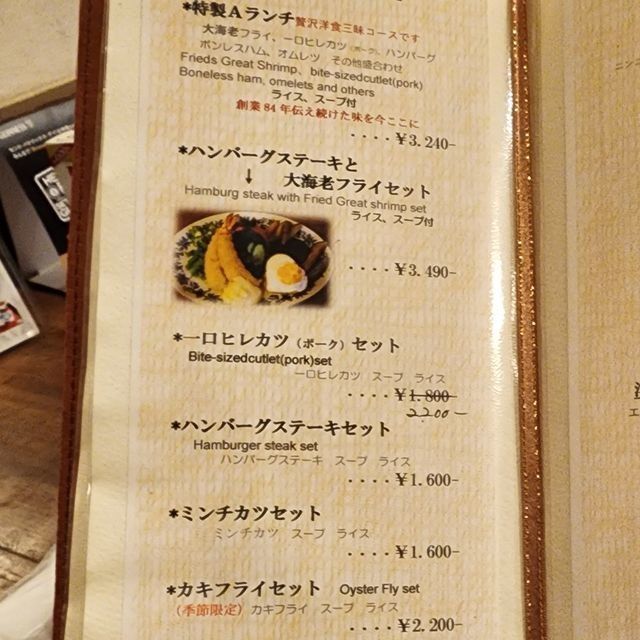 *特製Aランチ贅沢洋食三昧コースです
大海老フライ、一口ヒレカツ（ポーク）、ハンバーグ
ボンレスハム、オムレツ　その他盛合わせ
Frieds Great Shrimp、bite-sizedcutlet(pork)
Boneless ham, omelets and others
ライス、スープ付
創業84年伝え続けた味を今ここに
････¥3.240-
*ハンバーグステーキと
↓　大海老フライセット
Hamburg steak with Fried Great shrimp set
ライス、スープ付
････¥3.490-
*一口ヒレカツ（ポーク）セット
Bite-sizedcutlet(pork)set
一口ヒレカツ　スープ　ライス
････¥1.800-
2200-
*ハンバーグステーキセット
Hamburger steak set
ハンバーグステーキ　スープ　ライス
････¥1.600-
*ミンチカツセット
ミンチカツ　スープ　ライス
････¥1.600-
*カキフライセット　Oyster Fly set
（季節限定）カキフライ　スープ　ライス
････¥2.200-